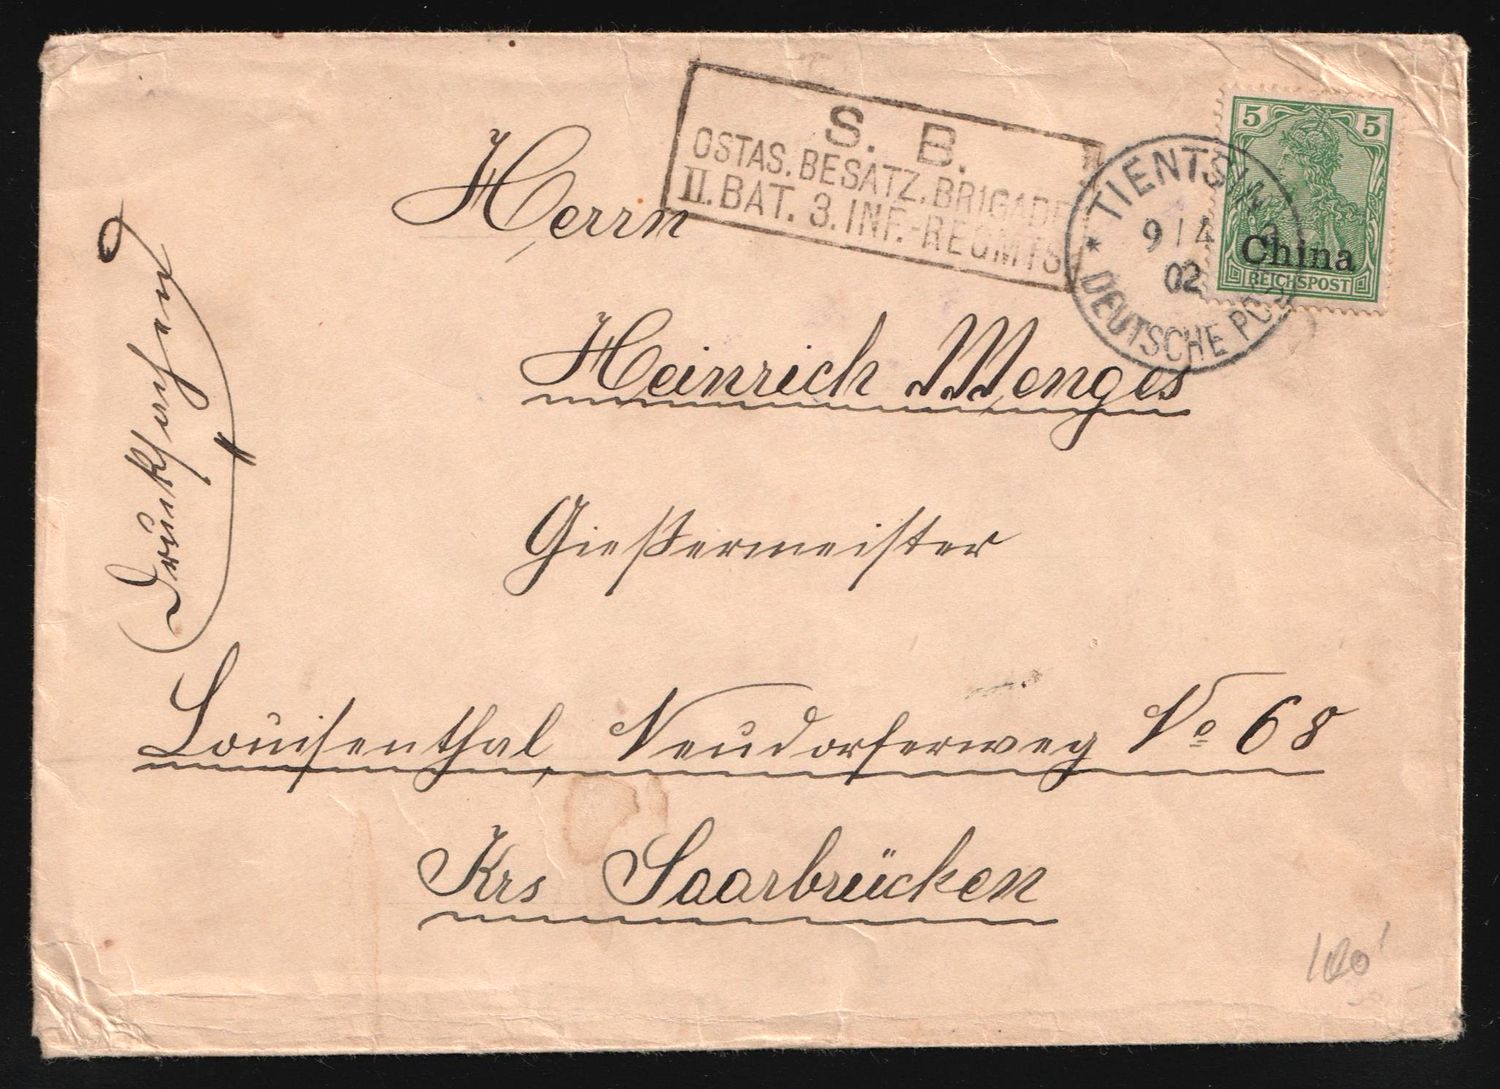 S. B.
OSTAS. BESATZ. BRIGADE
II. BAT. 3. INF.-REGMTS
5 5
China
REICHSPOST
* TIENTSIN
9/4
02
DEUTSCHE POST
Drucksachen
Herrn
Heinrich Menges
Gießermeister
Louisenthal, Neudorferweg No 68
Krs Saarbrücken
100